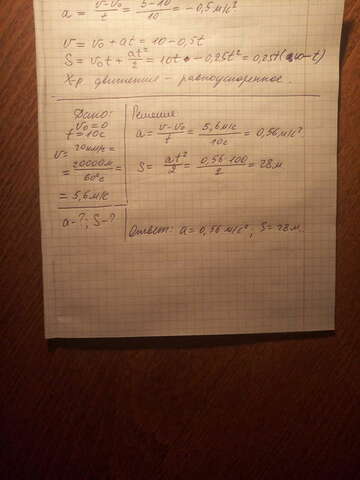 a = (v-v₀)/t = (5-10)/10 = -0,5 м/с²
v = v₀ + at = 10 - 0,5t
S = v₀t + at²/2 = 10t - 0,25t² = 0,25t(40-t)
Х-р движения - равноускоренное.
Дано:
v₀ = 0
t = 10с
v = 20км/ч =
= 20000м/60²с =
= 5,6 м/с
a-?; S-?
Решение
a = (v-v₀)/t = 5,6м/с/10с = 0,56 м/с²
S = at²/2 = 0,56·100/2 = 28м
Ответ: a = 0,56 м/с²; S = 28м.